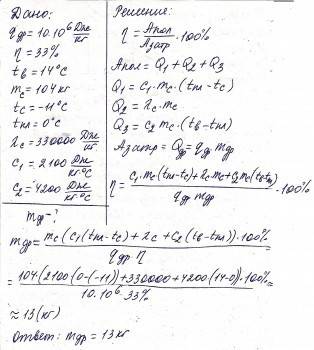 Дано:
qдр = 10·10⁶ Дж/кг
η = 33%
tв = 14°C
mc = 104 кг
tc = -11°C
tпл = 0°C
λc = 330000 Дж/кг
c₁ = 2100 Дж/кг·°C
c₂ = 4200 Дж/кг·°C
mдр - ?
Решение:
η = Aпол/Aзатр · 100%
Aпол = Q₁ + Q₂ + Q₃
Q₁ = c₁·mc·(tпл - tc)
Q₂ = λc·mc
Q₃ = c₂ mc·(tв - tпл)
Aзатр = Qдр = qдр mдр
η = c₁·mc·(tпл-tc) + λc·mc + c₂mc(tв-tпл) / qдр mдр · 100%
mдр = mc(c₁(tпл-tc) + λc + c₂(tв-tпл))·100% / qдр η =
= 104(2100(0-(-11)) + 330000 + 4200(14-0))·100% / 10·10⁶·33% =
≈ 13(кг)
Ответ: mдр = 13 кг